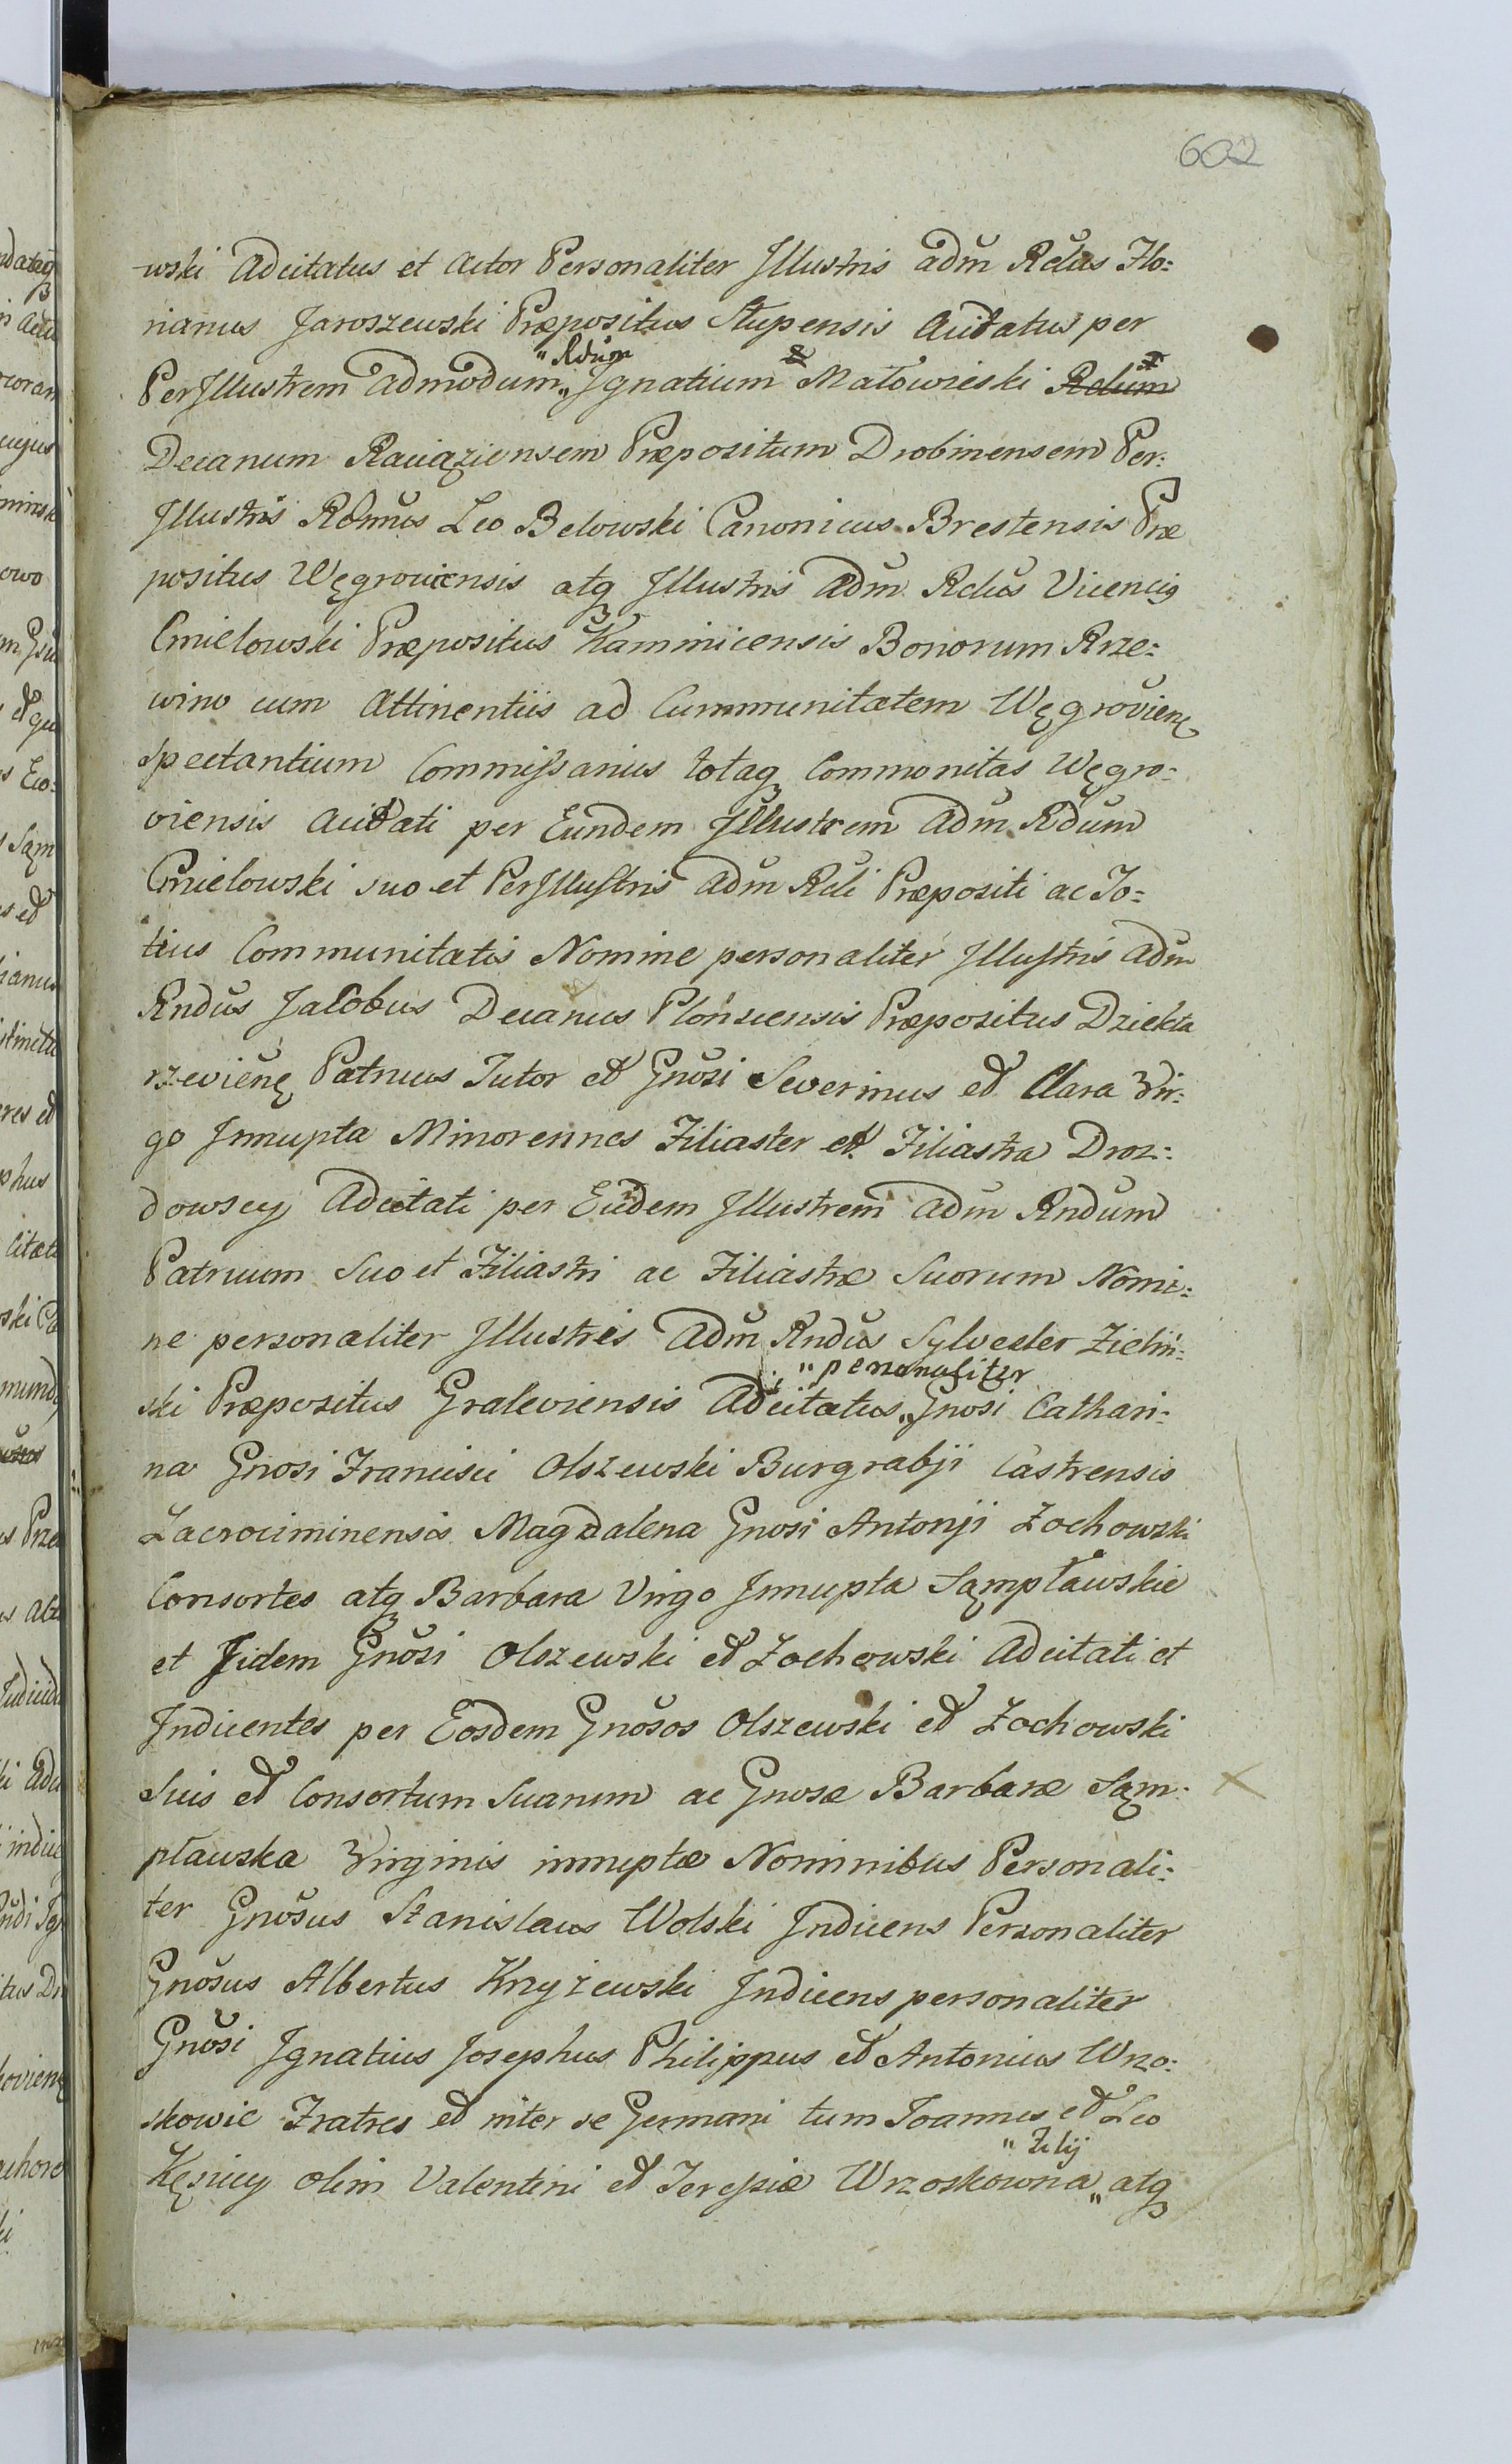 602
wski Adcitatus et Actor Personaliter Illustris adm̃ Rdus Flo:
rianus Jaroszewski Præpositus Stupensis Accitatus per
PerIllustrem admodum „Rdum Ignatium Małowieski Rdum
Decanum Raciąziensem Præpositum Drobinensem Per:
Illustris Rdmus Leo Belowski Canonicus Brestensis Præ
positus Węgroviensis atq Illustris Adm̃ Rdus Vicencig
Cmielowski Præpositus Kaminicensis Bonorum Rze:
wino cum Attinentiis ad Cummunitatem Węgroviene
spectantium Commissarius totaq Commonitas Węgro:
viensis Accitati per Eundem Illustrem Adm̃ Rdum
Cmielowski suo et PerIllustris Adm̃ Rdi Præpositi ac To:
tius Communitatis Nomine personaliter Illustris Adm̃
Rndus Jacobus Decanus Płonscensis Præpositus Dziekta
rzevienę Patruus Tutor et Gnosi Severinus et Clara Vir:
go Innupta Minorennes Filiaster et Filiastra Droz:
dowscy Adcitati per Eudem Illustrem Adm̃ Rndum
Patruum Suo et Filiastri ac Filiastræ Suorum Nomi:
ne personaliter Illustris Adm̃ Rndus Sylvester Zieliń:
ski Præpositus Graleviensis Adcitatus „personaliter Gnosi Cathari:
na Gnosi Francisci Olszewski Burgrabji Castrensis
Zacrociminensis Magdalena Gnosi Antonji Zochowski
Consortes atq Barbara Virgo Innupta Sąmpławskie
et Iidem Gnosi Olszewski et Zochowski Adcitati et
Indicentes per Eosdem Gnosos Olszewski et Zochowski
Suis et Consortum Suarum ac Gnosæ Barbaræ Sąm:
pławska Virginis innuptæ Nominibus Personali:
ter Gnosus Stanislaus Wolski Indicens Personaliter
Gnosus Albertus Krzyżewski Indicens personaliter
Gnosi Ignatius Josephus Philippus et Antonius Wrzo:
skowie Fratres et inter se Germani tum Joannes et Leo
Kęsiccy olim Valentini et Teressiæ Wrzoskowna „Filij atq